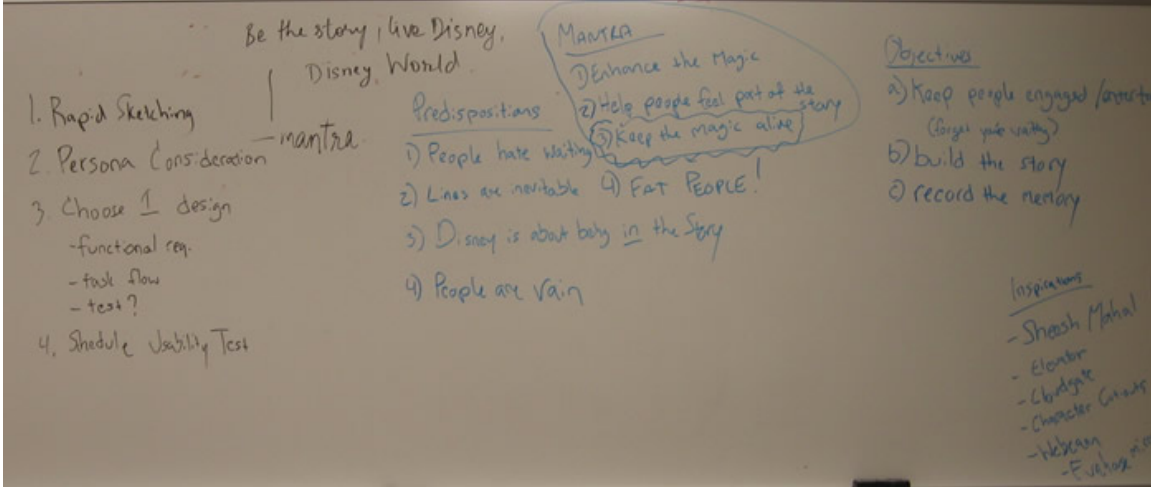 Be the story, live Disney,
Disney World
- mantra.
1. Rapid Sketching
2. Persona Consideration
3. Choose 1 design
- functional req.
- task flow
- test?
4. Shedule Usability Test
Predispositions
1) People hate waiting
2) Lines are inevitable
3) Disney is about being in the Story
4) People are vain
MANTRA
1) Enhance the Magic
2) Help people feel part of the story
3) Keep the magic alive
4) FAT PEOPLE!
Objectives
a) Keep people engaged /
(forget you're waiting)
b) build the story
c) record the memory
Inspirations
- Sheesh Mahal
- Elevator
- Cloudgate
- Character Cutouts
- Webcam